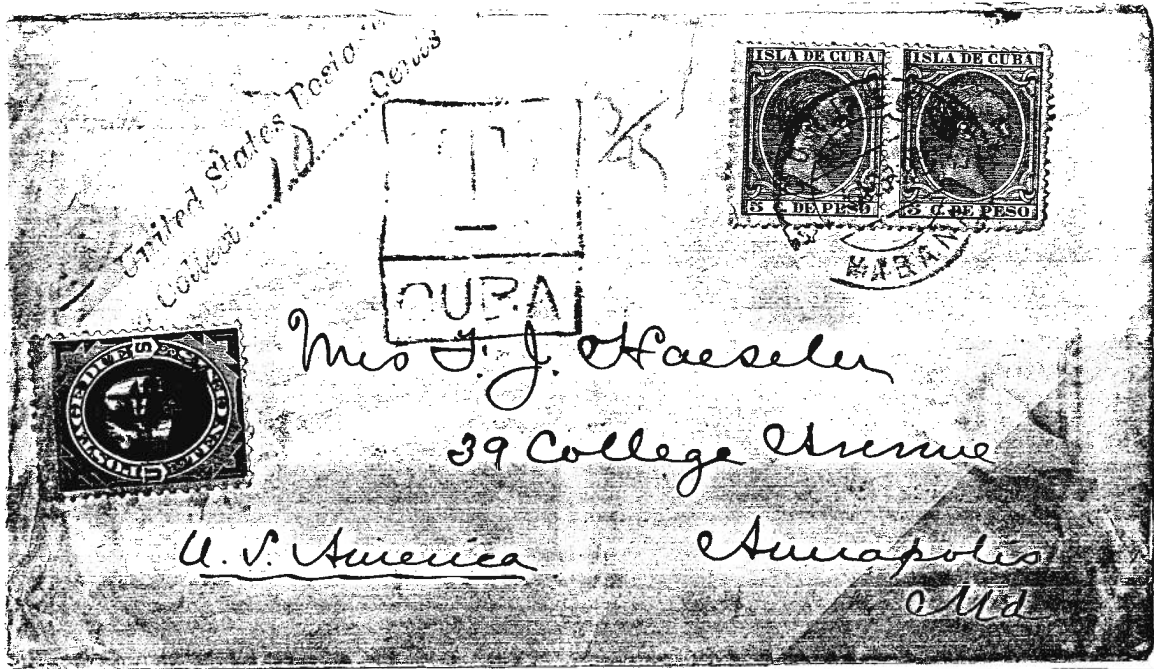 United States Postage
Collect 10 Cents
T
CUBA
ISLA DE CUBA
5 C. DE PESO
ISLA DE CUBA
5 C. DE PESO
HABANA
POSTAGE DUE
Mrs F. J. Haeseler
39 College Avenue
Annapolis
Md
U. S. America